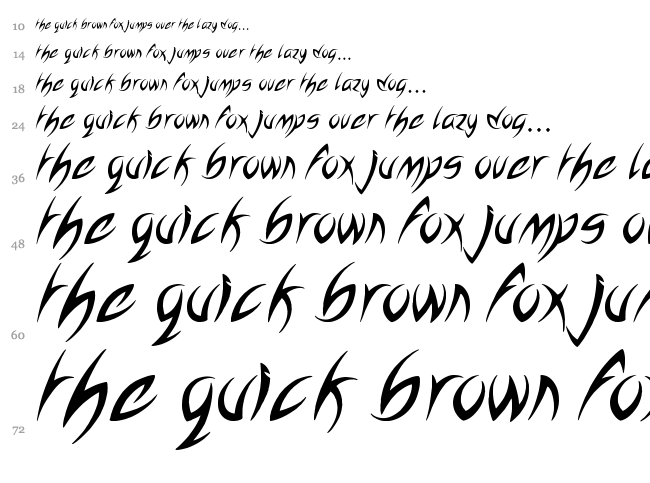 10 the quick brown fox jumps over the lazy dog...
14 the quick brown fox jumps over the lazy dog...
18 the quick brown fox jumps over the lazy dog...
24 the quick brown fox jumps over the lazy dog...
36 the quick brown fox jumps over the la
48 the quick brown fox jumps o
60 the quick brown fox ju
72 the quick brown fo